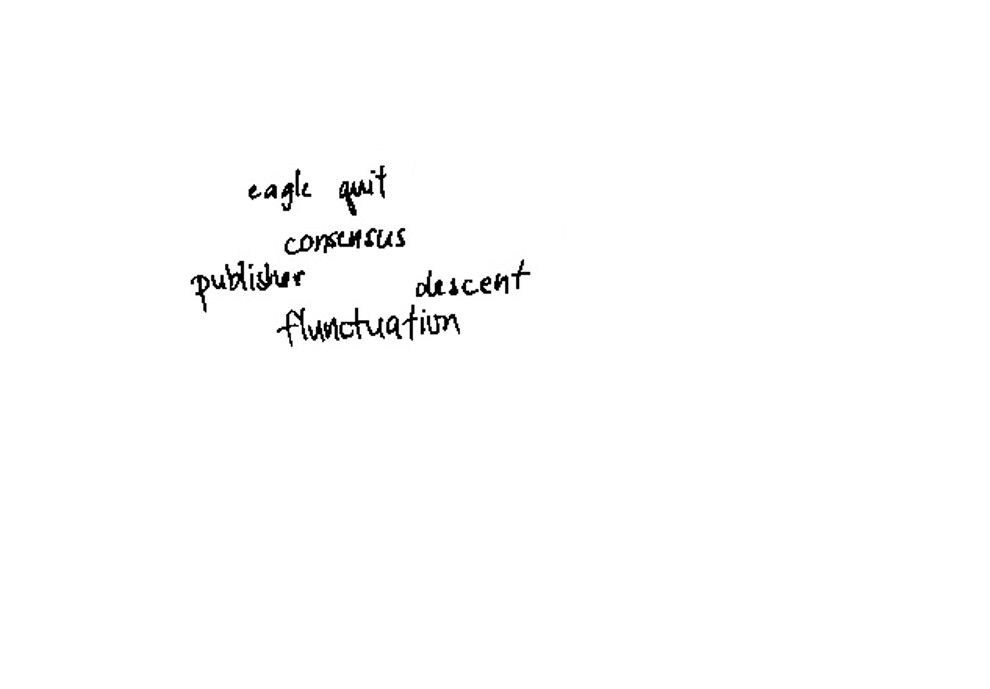 eagle quit
consensus
publisher descent
flunctuation